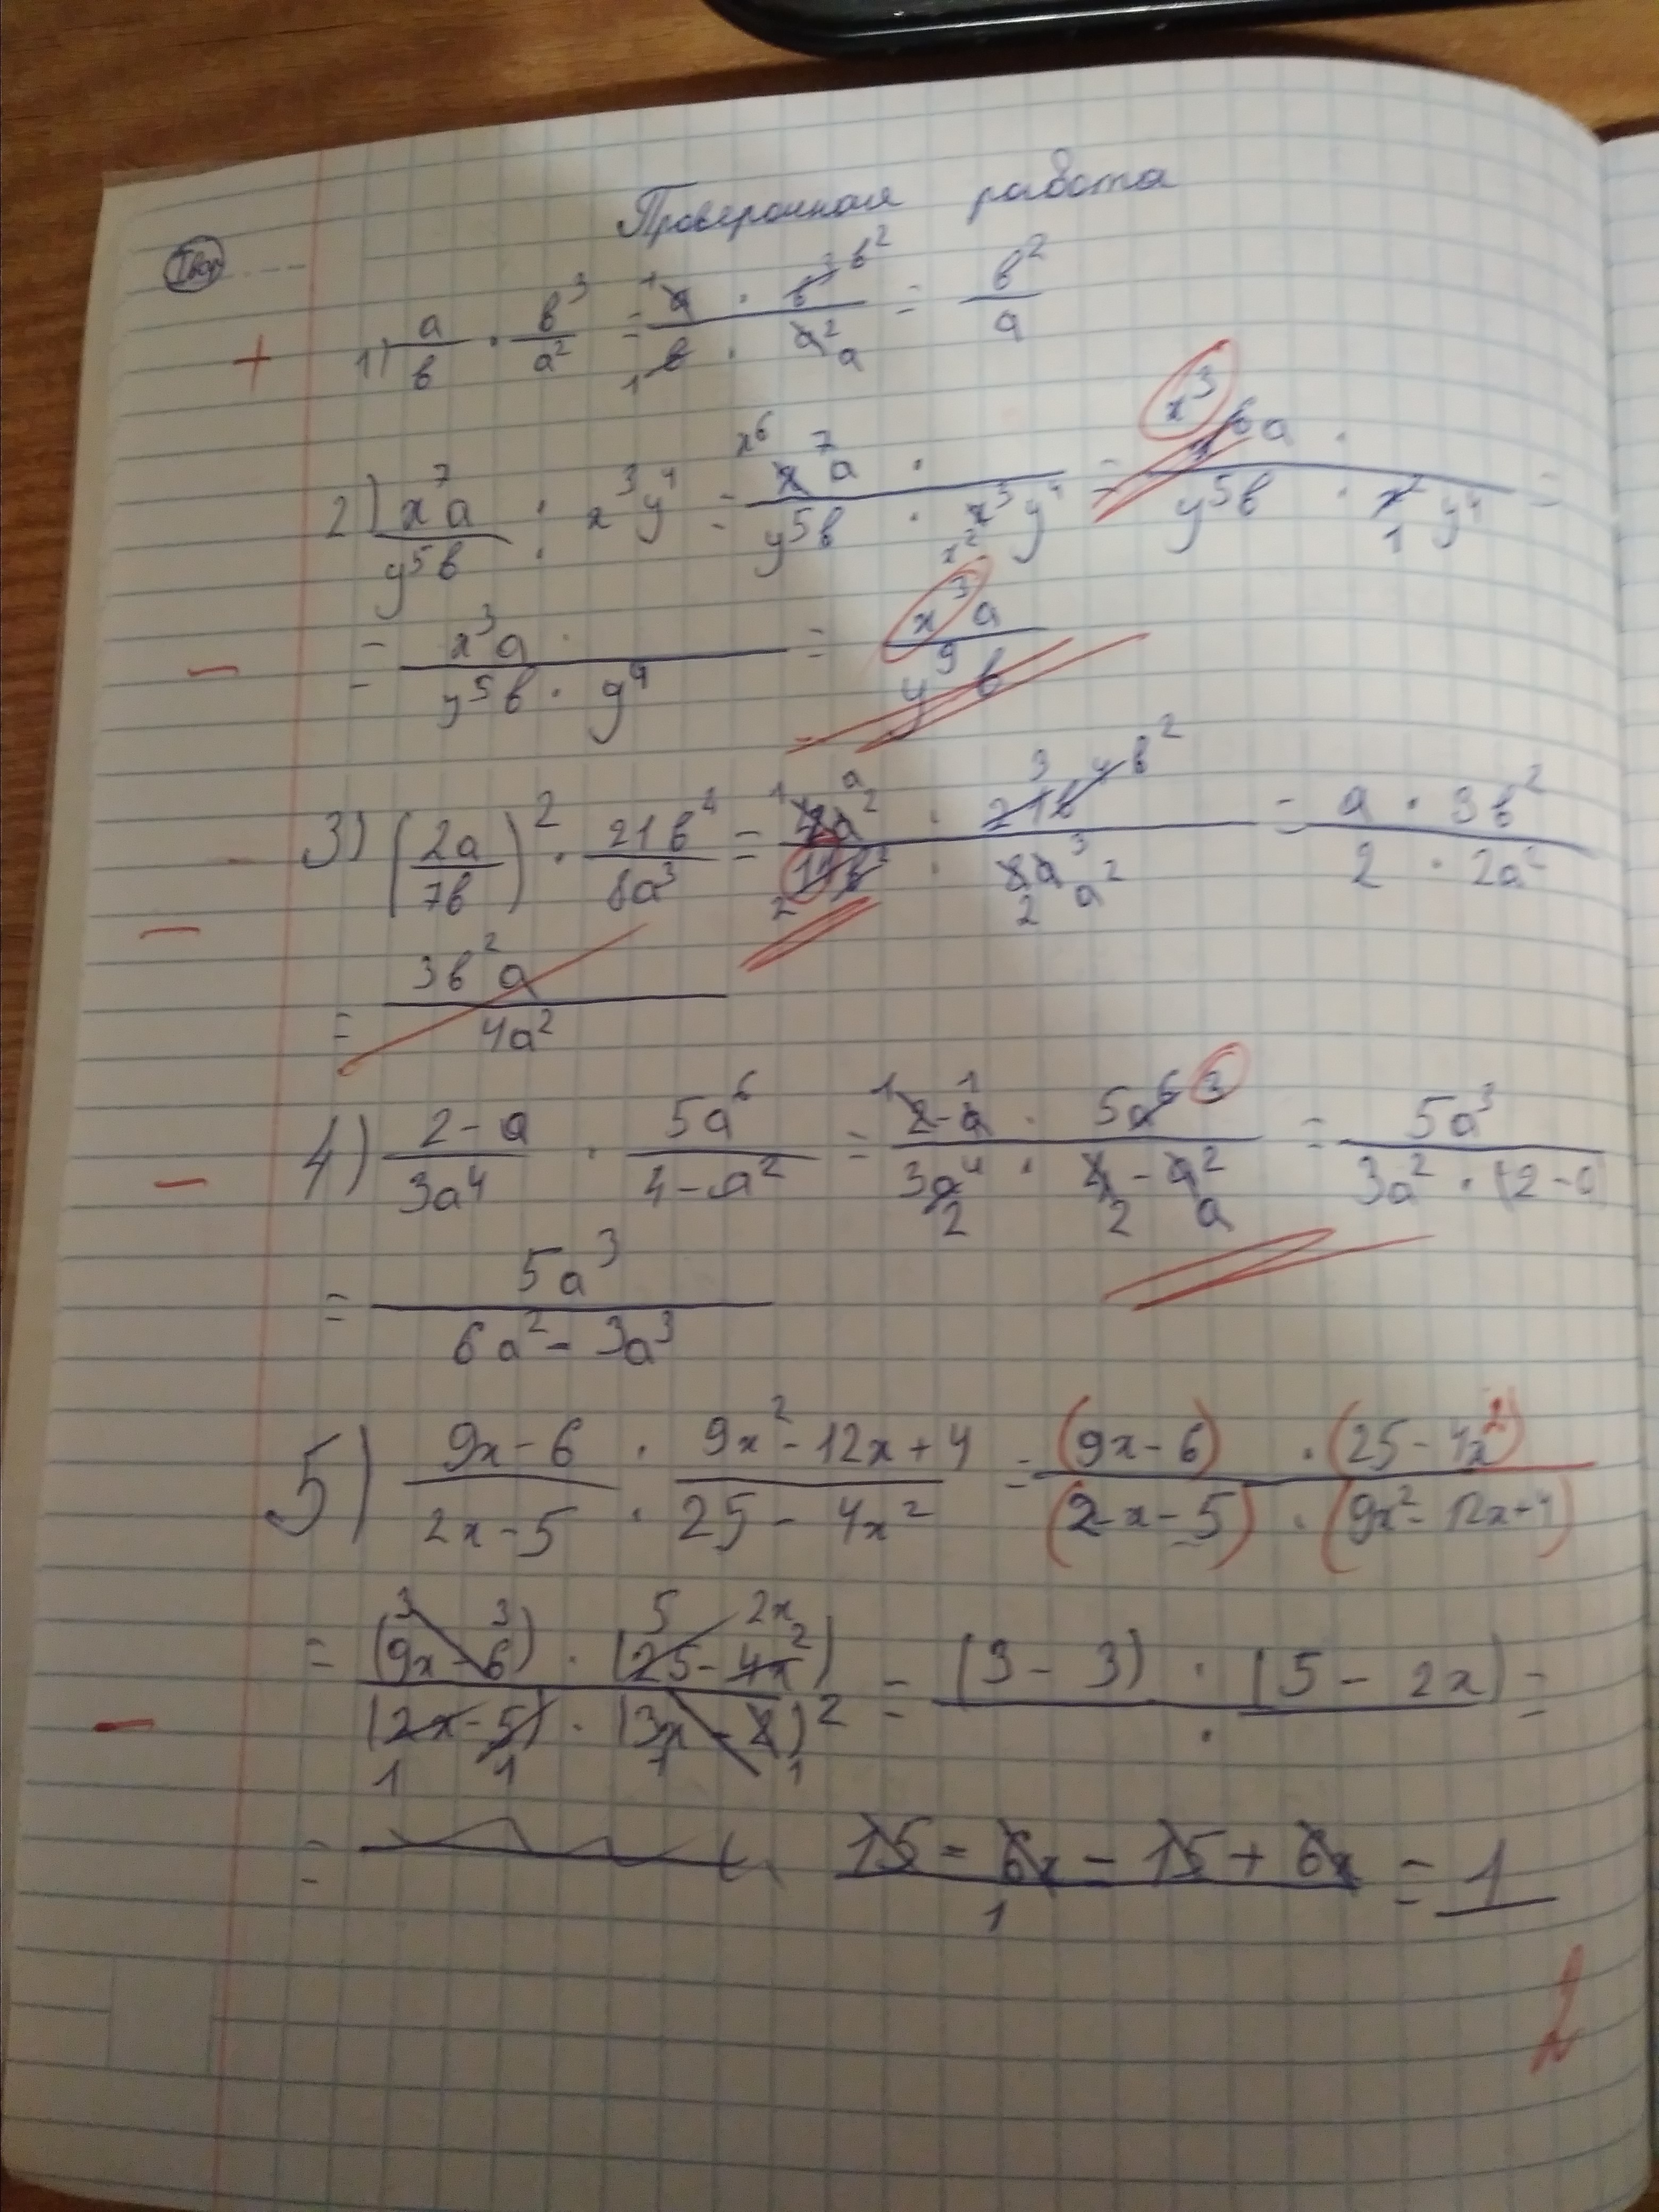 Проверочная работа
Iвар
+ 1) a/в · в³/a² = a · в³/в · a² = в²/a
2) x⁷a/y⁵в : x³y⁴ = x⁷a ·/y⁵в · x³y⁴ = x⁶a ·/y⁵в · x² y⁴ =
− = x³a ·/y⁵в · y⁴ = x³a/y⁹в
3) (2a/7в)² · 21в⁴/8a³ = 4a² · 21в⁴/14в² · 8a³ = a · 3в²/2 · 2a²
− = 3в²a/4a²
− 4) 2-a/3a⁴ · 5a⁶/4-a² = 2-a · 5a⁶/3a⁴ · 4-a² = 5a³/3a² · (2-a
= 5a³/6a² - 3a³
5) 9x-6/2x-5 : 9x²-12x+4/25-4x² = (9x-6) · (25-4x²)/(2x-5) · (9x²-12x+4)
− = (9x-6) · (25-4x²)/(2x-5) · (3x-2)² = (3-3) · (5-2x) =
= 15-6x-15+6x/1 = 1
2